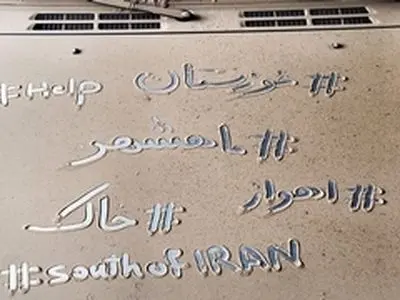 #Help #خوزستان
#ماهشهر
#اهواز
#خاک
#South of IRAN